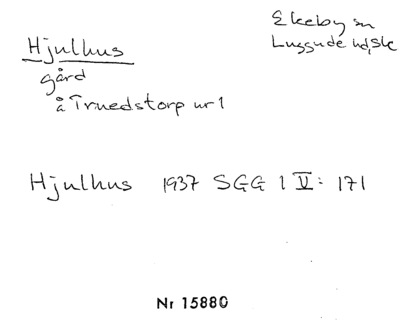 Hjulhus
Ekeby sn
Luggude hd, Sk
gård
å Truedstorp nr 1
Hjulhus 1937 SGG 1 V: 171
Nr 15880